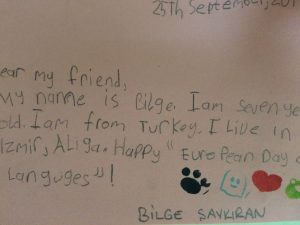 25th September, 201
ear my friend,
My name is Bilge. I am seven ye
old. I am from Turkey. I Live in
Izmir, Aliğa. Happy "European Day o
Languges"!
BİLGE ŞAYKIRAN